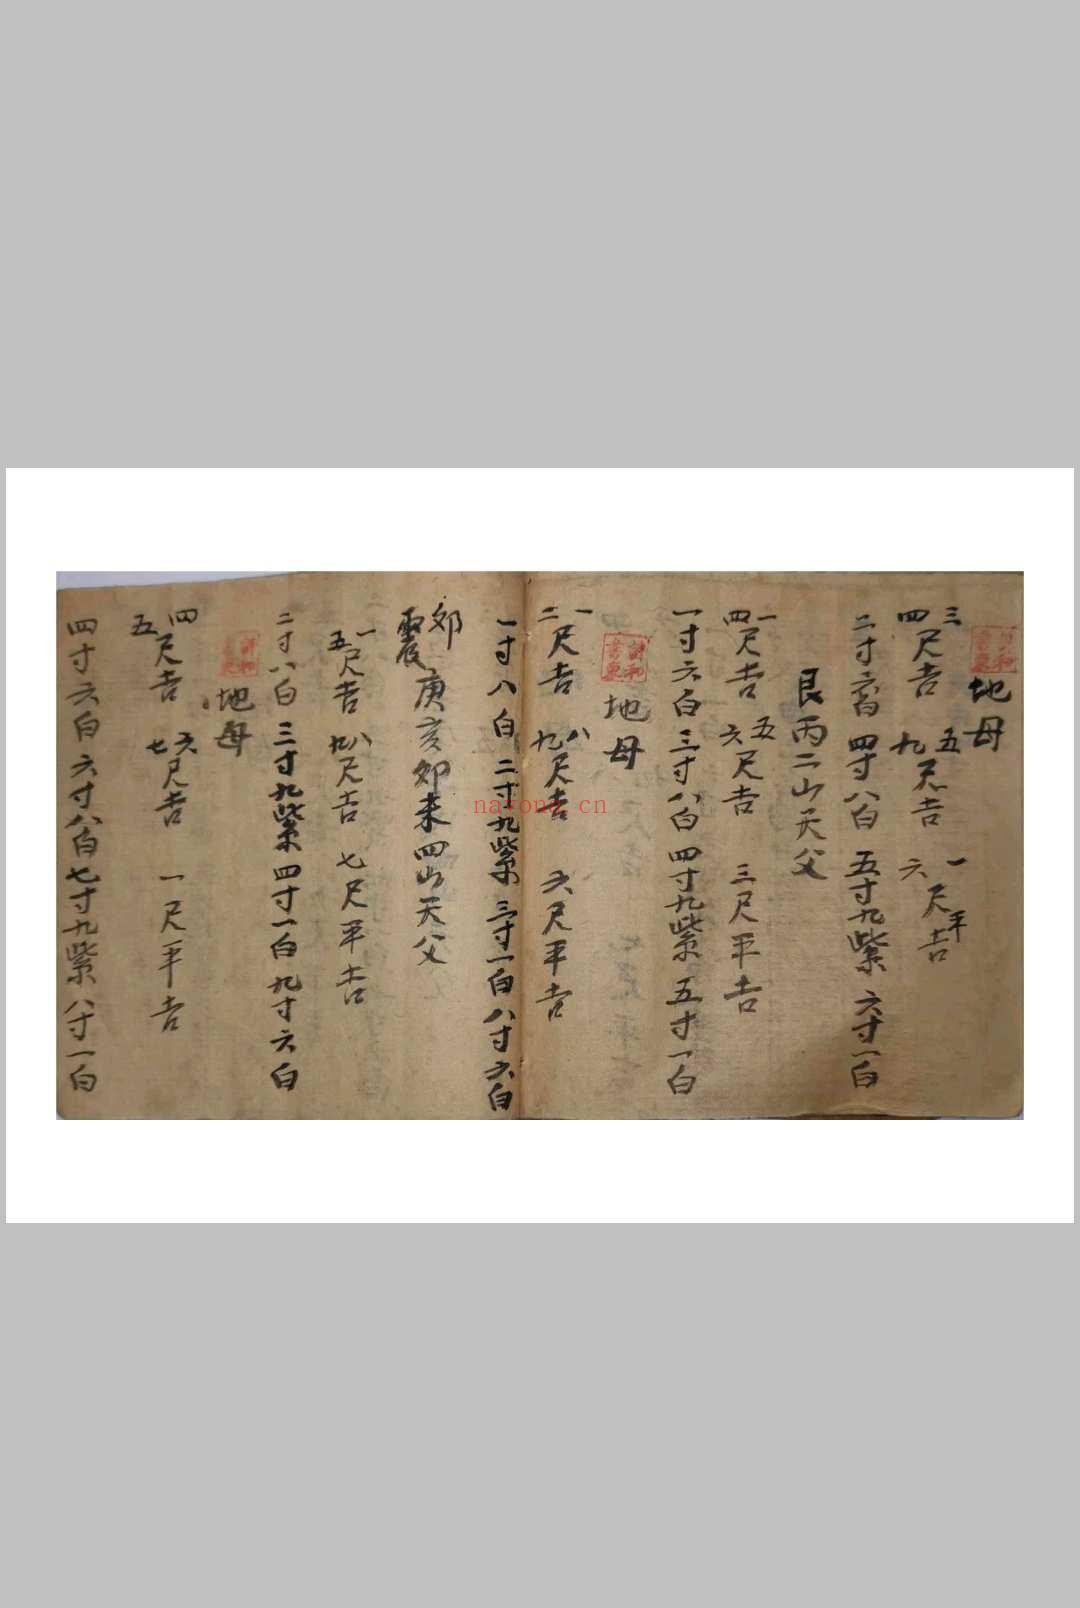 地母
三四尺吉 五九尺吉 一六尺平吉
二寸六白 四寸八白 五寸九紫 六寸一白
艮丙二山天父
一四尺吉 五六尺吉 三尺平吉
一寸六白 三寸八白 四寸九紫 五寸一白
地母
一二尺吉 八九尺吉 六尺平吉
一寸八白 二寸九紫 三寸一白 八寸六白
卯震庚亥卯未四山天父
一五尺吉 八九尺吉 七尺平吉
二寸八白 三寸九紫 四寸一白 九寸六白
地母
四五尺吉 六七尺吉 一尺平吉
四寸六白 六寸八白 七寸九紫 八寸一白
nayona.cn